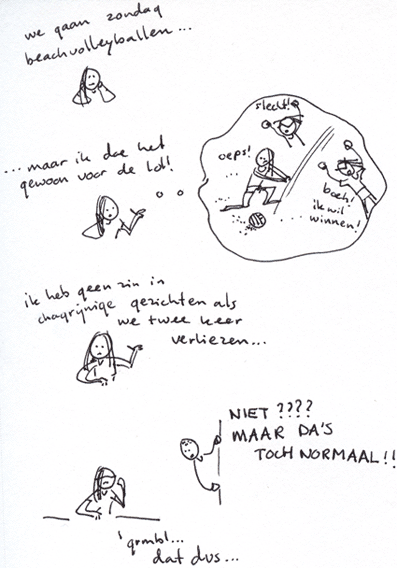 we gaan zondag
beachvolleyballen...
...maar ik doe het
gewoon voor de lol!
slecht!
oeps!
...
boeh!
ik wil
winnen!
...
ik heb geen zin in
chagrijnige gezichten als
we twee keer
verliezen...
NIET ????
MAAR DA'S
TOCH NORMAAL!!
'grmbl...
dat dus...